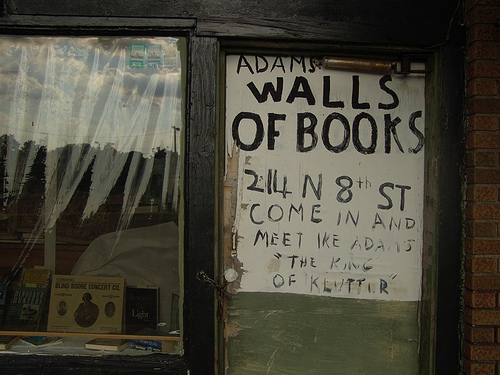 ADAMS
WALLS
OF BOOKS
214 N 8th ST
COME IN AND
MEET IKE ADAMS
"THE KING
OF KLUTTER"
BLIND BOONE CONCERT CO.
Light